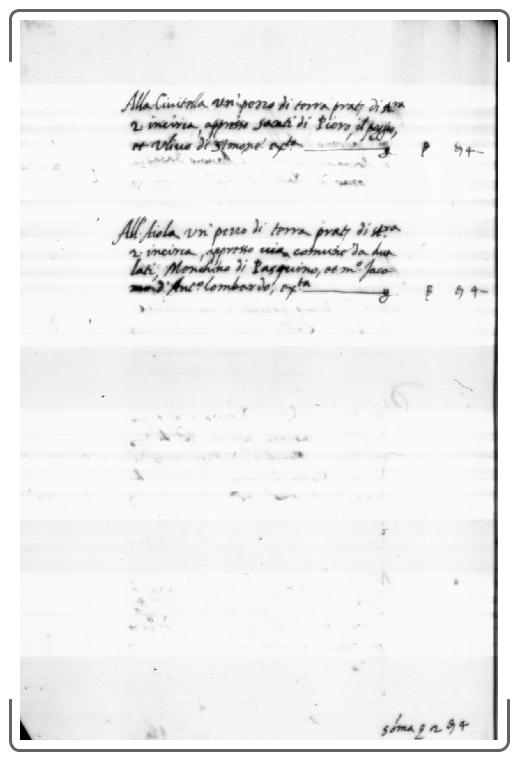 Alla Civitella un' pezzo di terra prat. di st.ra
2 incirca, appresso Santi di Piero, il poggio,
et Ulivo di Simone. ex.ta
All' Aiola un' pezzo di terra prat. di st.ra
2 incirca, appresso via comune da dua
lati, Menchino di Pasquino, et m.o Jaco
mo d' Ant.o lombardo, ex.ta
sōma